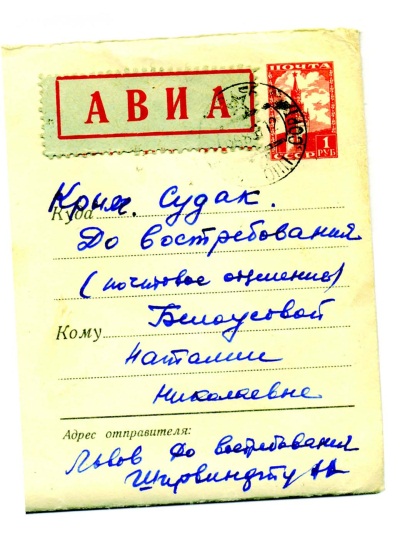 АВИА
ПОЧТА
1
РУБ
СССР
Крым. Судак.
Куда
До востребования
(почтовое отделение)
Белоусовой
Кому
Наталии
Николаевне
Адрес отправителя:
Львов До востребования
Ширвиндту АА